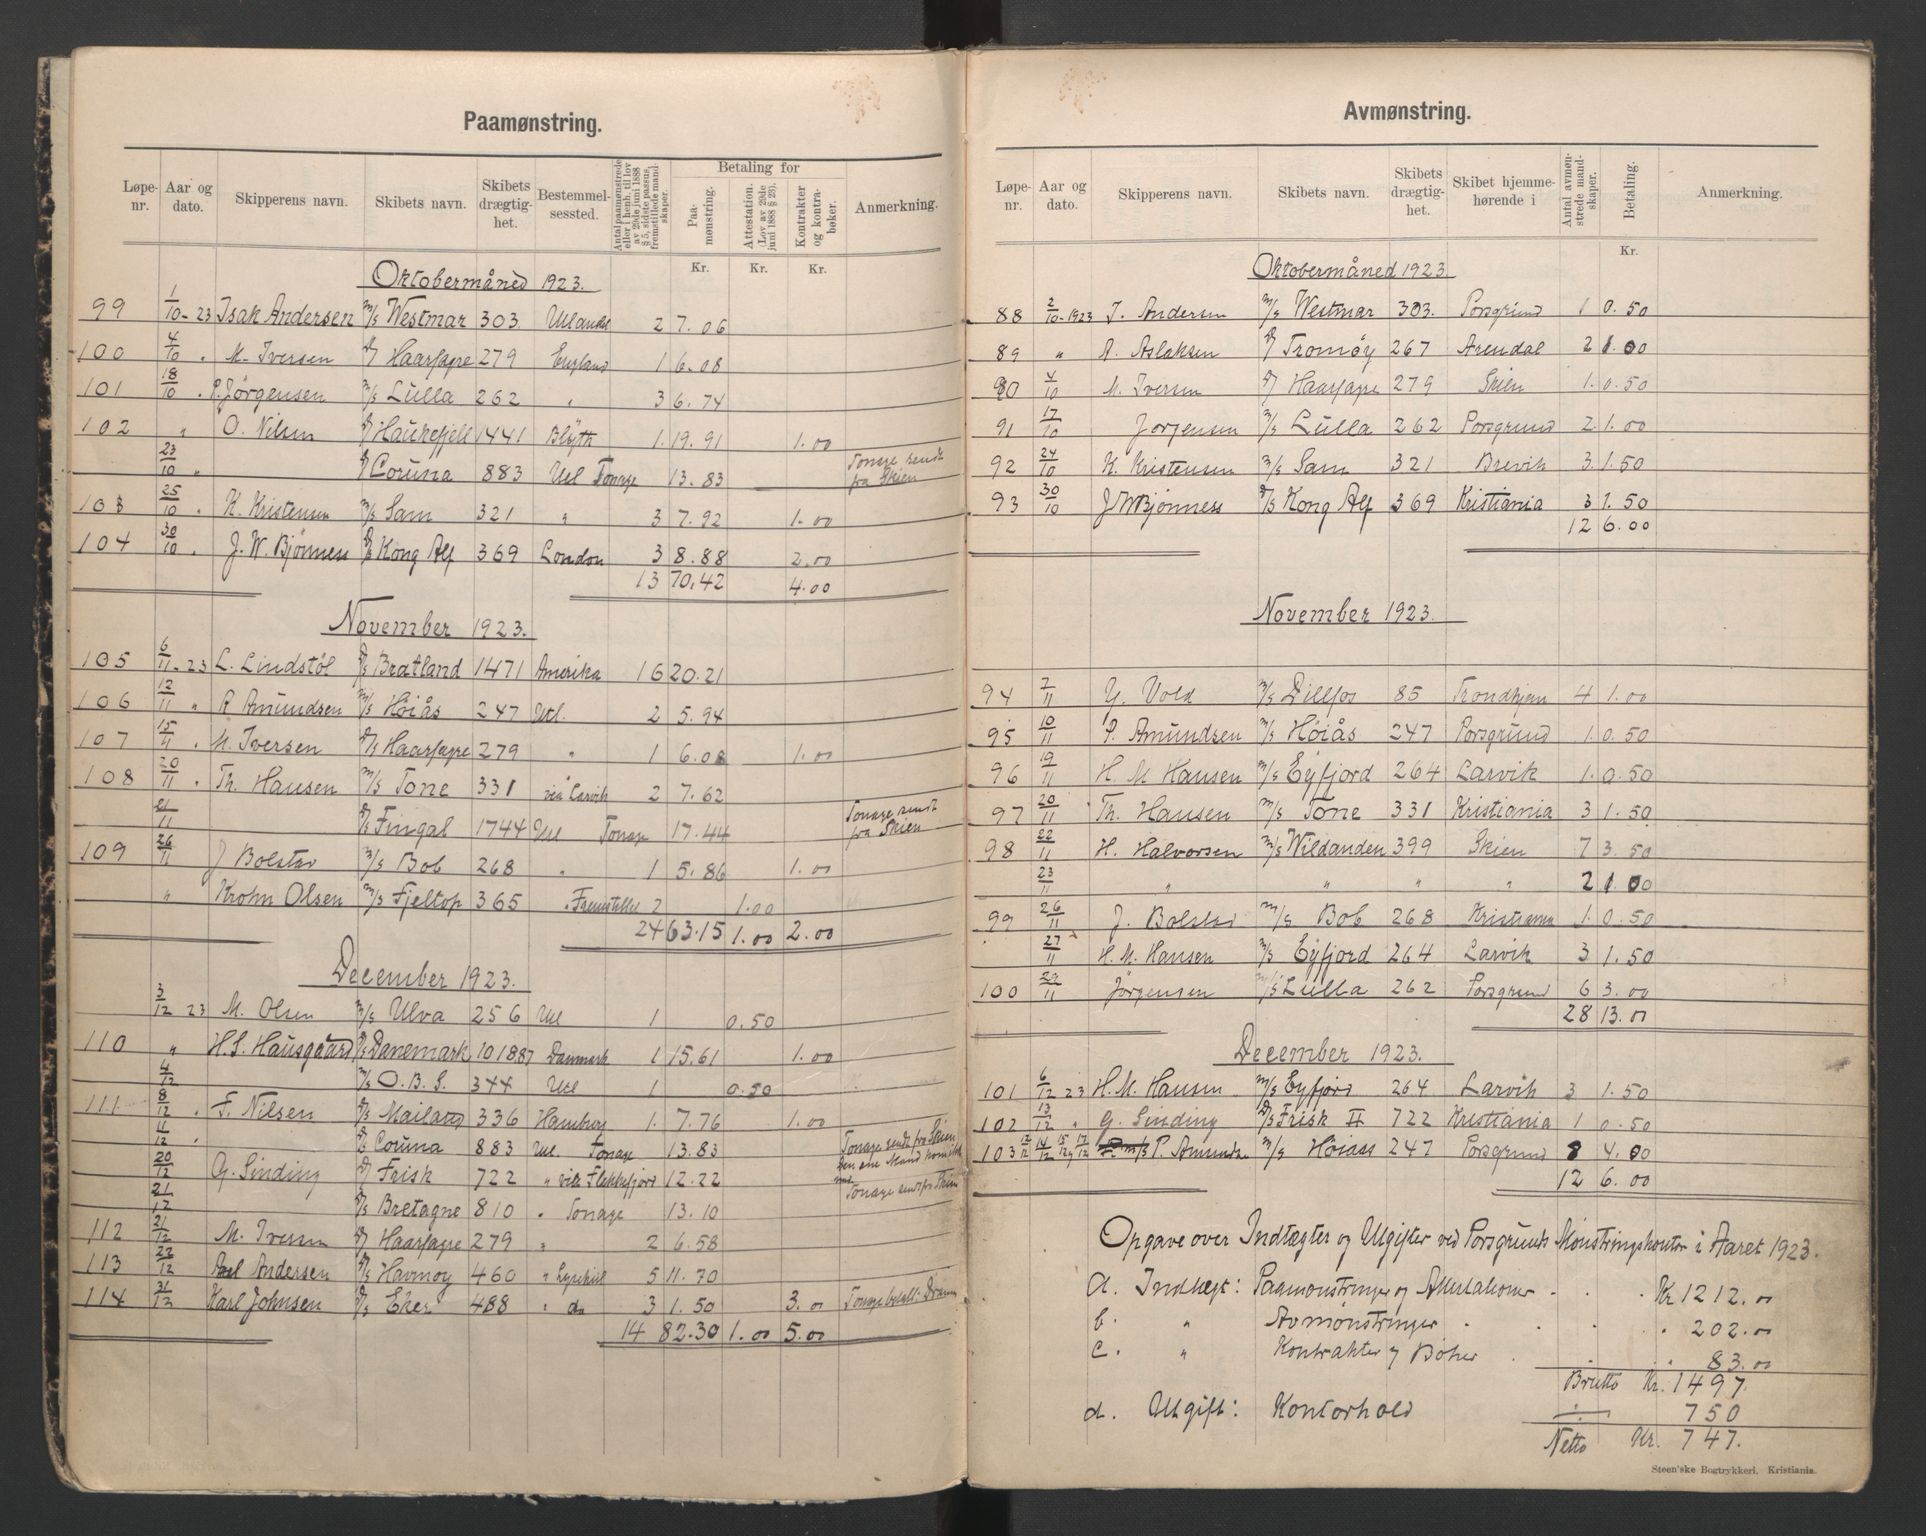 Paamønstring.
Løpe-nr. Aar og dato. Skipperens navn. Skibets navn. Skibets drægtighet. Bestemmelsessted. Antal paamønstrede eller i henh. til lov av 29de juni 1888 § 5, sidste passus, fremstillede mandskaper. Betaling for Paamønstring. Attestation. (Lov av 29de juni 1888 § 23). Kontrakter og kontrabøker. Anmerkning.
Kr. Kr. Kr.
Oktobermåned 1923.
99 1/10-23 Isak Andersen m/s Westmar 303. Utlandet 2 7.06
100 4/10 " M. Iversen Haarfagre 279 England 1 6.08
101 18/10 " P. Jørgensen m/s Lulla 262 " 3 6.74
102 " O. Nilsen Haukefjell 1441 Blyth 1. 19.91 1.00
23/10 " Coruna 883 Utl Tonage 13.83 Tonage sendt fra Skien
103 25/10 " K. Kristensen m/s Sam 321 " 3 7.92 1.00
104 30/10 " J. W. Bjønness d/s Kong Alf 369 London 3 8.88 2.00
13 70.42 4.00
November 1923.
105 6/11-23 L. Lindstøl d/s Bratland 1471 Amerika 16 20.21
106 12/11 " P. Amundsen m/s Höiås 247 Utl. 2 5.94
107 15/11 " M. Iversen d/s Haarfagre 279 " 1 6.08 1.00
108 20/11 " Th. Hansen m/s Tone 331 via Larvik 2 7.62
21/11 d/s Fingal 1744 Utl Tonage 17.44 Tonage sendt fra Skien
109 26/11 J Bolstad m/s Bob 268 " 1 5.86 1.00
" Krohn Olsen m/s Fjeltop 365 " Fremstillet 2 1.00
24 63.15 1.00 2.00
December 1923.
3/12 23 M. Olsen m/s Ulva 256 Utl 1 0.50
110 " H. S. Hausgaard d/s Danemark 1887 Danmark 1 15.61 1.00
4/12 m/s O.B.S. 344 Utl 1 0.50
111 8/12 " F. Nilsen d/s Mailand 336 Hamburg 1. 7.76 1.00
11/12 " d/s Coruna 883 Utl. Tonage 13.83 Tonage sendt fra Skien
20/12 G. Sinding Frisk 722 " via Flekkefjord 12.22
21/12 d/s Bretagne 810 " Tonage 13.10 Tonage sendt fra Skien
112 21/12 M. Iversen Haarfagre 279 " 2 6.58
113 22/12 Axel Andersen d/s Havmoy 460 " Lysekil 5 11.70
114 31/12 Karl Johnsen d/s Eker 488 " do 3 1.50 3.00 Tonage betalt i Dramn
14 82.30 1.00 5.00
Avmønstring.
Løpe-nr. Aar og dato. Skipperens navn. Skibets navn. Skibets drægtighet. Skibet hjemmehørende i Antal avmønstrede mandskaper. Betaling. Anmerkning.
Kr.
Oktobermåned 1923.
88 2/10-1923 J. Andersen m/s Westmar 303. Porsgrund 1 0.50
89 " A. Aslaksen Tromøy 267 Arendal 2 1.00
90 4/10 M. Iversen Haarfagre 279 Skien 1. 0.50
91 17/10 Jorgensen m/s Lulla 262 Porsgrund 2. 1.00
92 24/10 K. Kristensen m/s Sam 321 Brevik 3. 1.50
93 30/10 J W Bjønness d/s Kong Alf 369 Kristiania 3 1.50
12 6.00
November 1923.
94 7/11 G. Vold m/s Dillfos 85 Trondhjem 4 1.00
95 10/11 P. Amundsen m/s Höiås 247 Porsgrund 1. 0.50
96 19/11 H. M Hansen m/s Eyfjord 264 Larvik 1. 0.50
97 20/11 Th. Hansen m/s Tone 331 Kristiania 3 1.50
98 22/11 H. Halvorsen m/s Wildanden 399 Skien 7 3.50
23/11 " " " " 2 1.00
99 26/11 J. Bolstad m/s Bob 268 Kristiania 1. 0.50
27/11 H. M. Hansen m/s Eyfjord 264 Larvik 3 1.50
100 29/11 Jörgensen m/s Lulla 262 Porsgrund 6 3.00
28 13.00
December 1923.
101 6/12 23 H. M. Hansen m/s Eyfjord 264 Larvik 3 1.50
102 13/12 " G. Sinding d/s Frisk II 722 Kristiania 1 0.50
103 12/12 14/12 15/12 og 17/12 P. Amunds m/s Höiaas 247 Porsgrund 8 4.00
12 6.00
Opgave over Indtægter og Utgifter ved Porsgrunds Mönstringskontor i Aaret 1923.
a. Indtægt: Paamönstringer og Attestationer . . . Kr 1212.00
b. " Avmönstringer . . . " 202.00
c. " Kontrakter og Böker . . " 83.00
Brutto Kr. 1497.
d. Utgift: Kontorhold ÷ 750
Netto Kr. 747.
Steen'ske Bogtrykkeri. Kristiania.